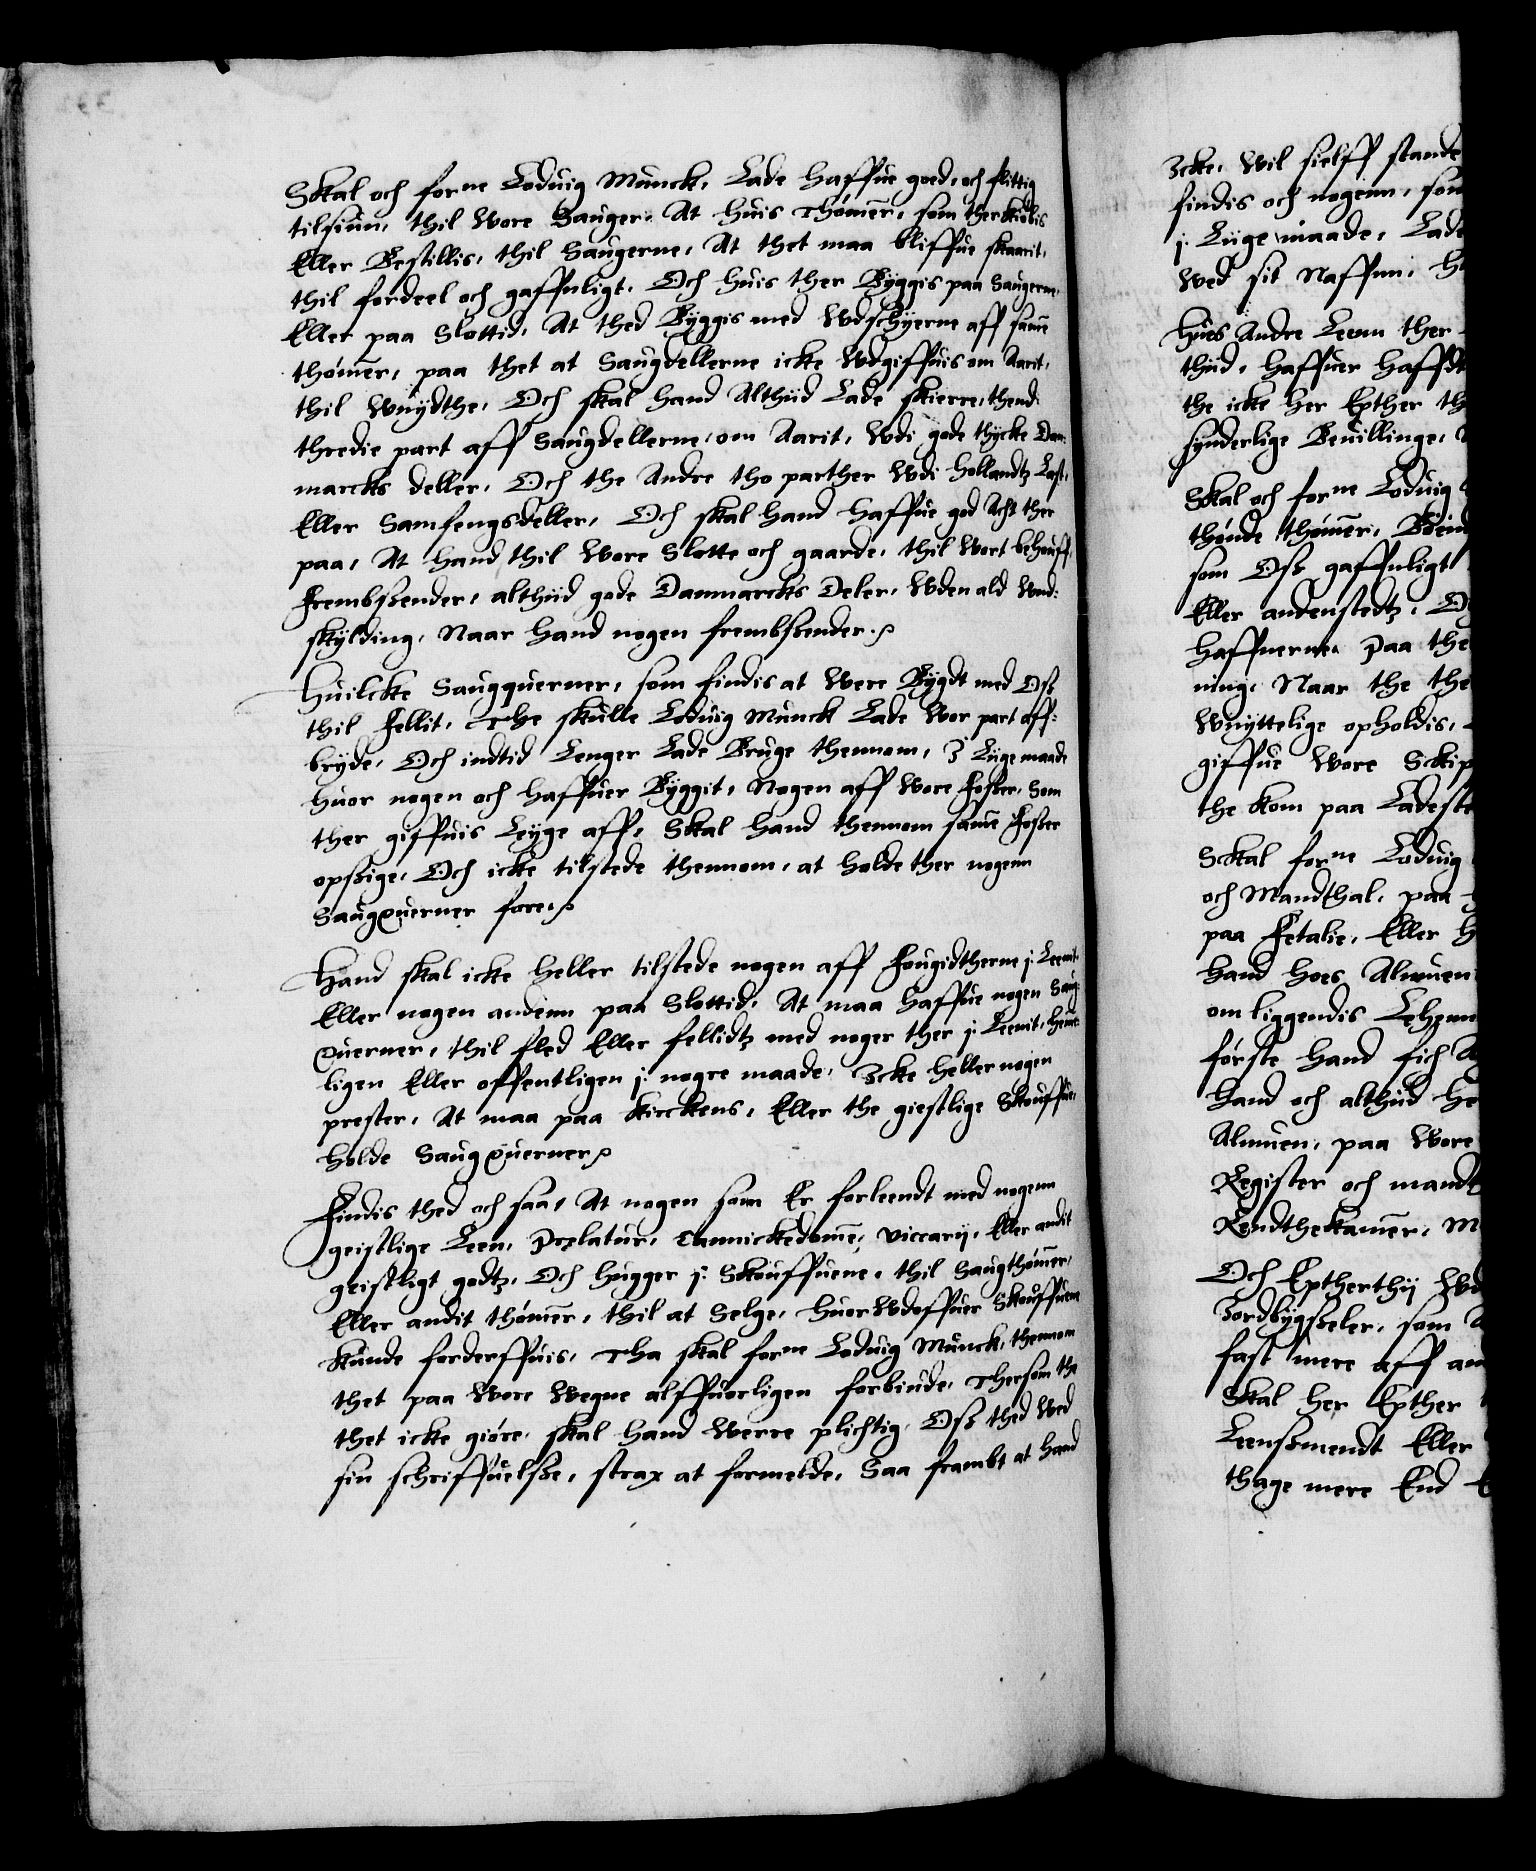 Skal och forne Loduig Munck, Lade haffue goed, och flittig
tilsiun, thil Wore Sauger. At huis Thømer, som ther kiøbis
Eller Bestillis, thil Saugerne, At thet maa bliffue skaarit,
thil fordeel och gaffnligt. Och huis ther Byggis paa Saugerne,
Eller paa Slottid, At thed Byggis med Wdschyerne aff same
thømer, paa thet at Saugdellerne icke Wdgiffuis om Aarit,
thil Wnydthe, Och skal hand Althiid Lade skierre, thend
thredie part aff Saugdellerne, om Aarit, Wdi gode thycke Dan-
marcks deller, Och the Andre tho parther Wdi Hollandtz Last,
Eller Samfengsdeller, Och skal hand haffue god Acht ther
paa, At hand thil Wore Slotte och gaarde, thil Wort behouff,
frembszender, althiid gode Danmarcks Deler, Wden ald Wnd-
skylding, Naar hand nogen frembszender.
Huilcke Saugquerner, som findis at Were Bygdt med Osz
thil Fellit, The skulle Loduig Munck Lade Wor part aff-
bryde, Och indtid Lenger Lade Bruge thennom, J Liige maade
huor nogen och haffuer Byggit, Nogen aff Wore Fosser, Som
ther giffuis Leyge aff, Skal hand thennom same Fosser
opszige, Och icke tilstede thennom, at holde ther nogenn
Saugquerner fore.
Hand skal icke heller tilstede nogen aff Fougidtherne j Leenit,
Eller nogen andenn paa Slottid, At maa haffue nogen Saug-
querner, thil fled Eller fellidtz med noger ther j Leenit, heme-
ligen Eller offentligen j nogre maade, Icke heller nogen
prester, At maa paa Kirckens, Eller the giestlige Skouffue,
holde Saugquerner.
Findis thed och saa, At nogen som Er forleendt med nogenn
geistlige Leen, Prelatur, Cannickedome, Viccarij, Eller andit
geistligt godtz, Och hugger j Skouffuene, thil Saugthømer,
Eller andit thømer, thil at Selge, huor Wdoffuer Skouffuene
kunde forderffuis, Tha skal forne Loduig Munck, thennom
thet paa Wore Wegne alffuorligen forbiude, Thersom the
thet icke giøre, skal hand Werre plichtig, Osz thed Wed
sin schriffuelsze, strax at formelde, Saa frambt at hand
Icke, Wil sielff stande
findis och nogenn, som
j Liige maade, Lade
Wed sit Naffnn,
Hues Andre Leenn ther
thiid, haffuer hafft
the icke her Epther
synderlige Beuillinge,
Skal och forne Loduig
thønde thømer,
som Osz gaffnligt
Eller andenstedtz,
haffnerne, Paa the
ning, Naar the
Wnyttelige opholdis,
giffue Wore
the kom paa
Sckal forne Loduig
och Mandthal, paa
paa Fetalie, Eller
hand hoes Almuen
om liggendis Lehenn
første hand fich
hand och althiid
Almuen, paa Wore
Register och
Rendthekamer,
Och Eptherthij
Jordbygszeler, som
fast mere aff
Skal her Epther
Leenszmendt Eller
thage mere End